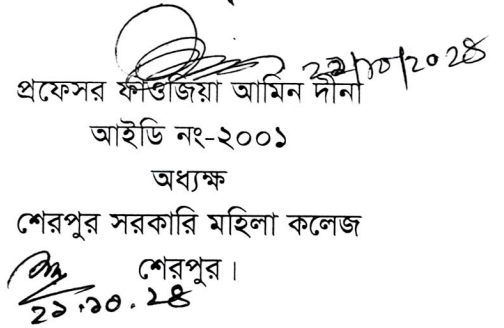 প্রফেসর ফাওজিয়া আমিন দীনা
আইডি নং-২০০১
অধ্যক্ষ
শেরপুর সরকারি মহিলা কলেজ
শেরপুর।
২১.১০.২৪